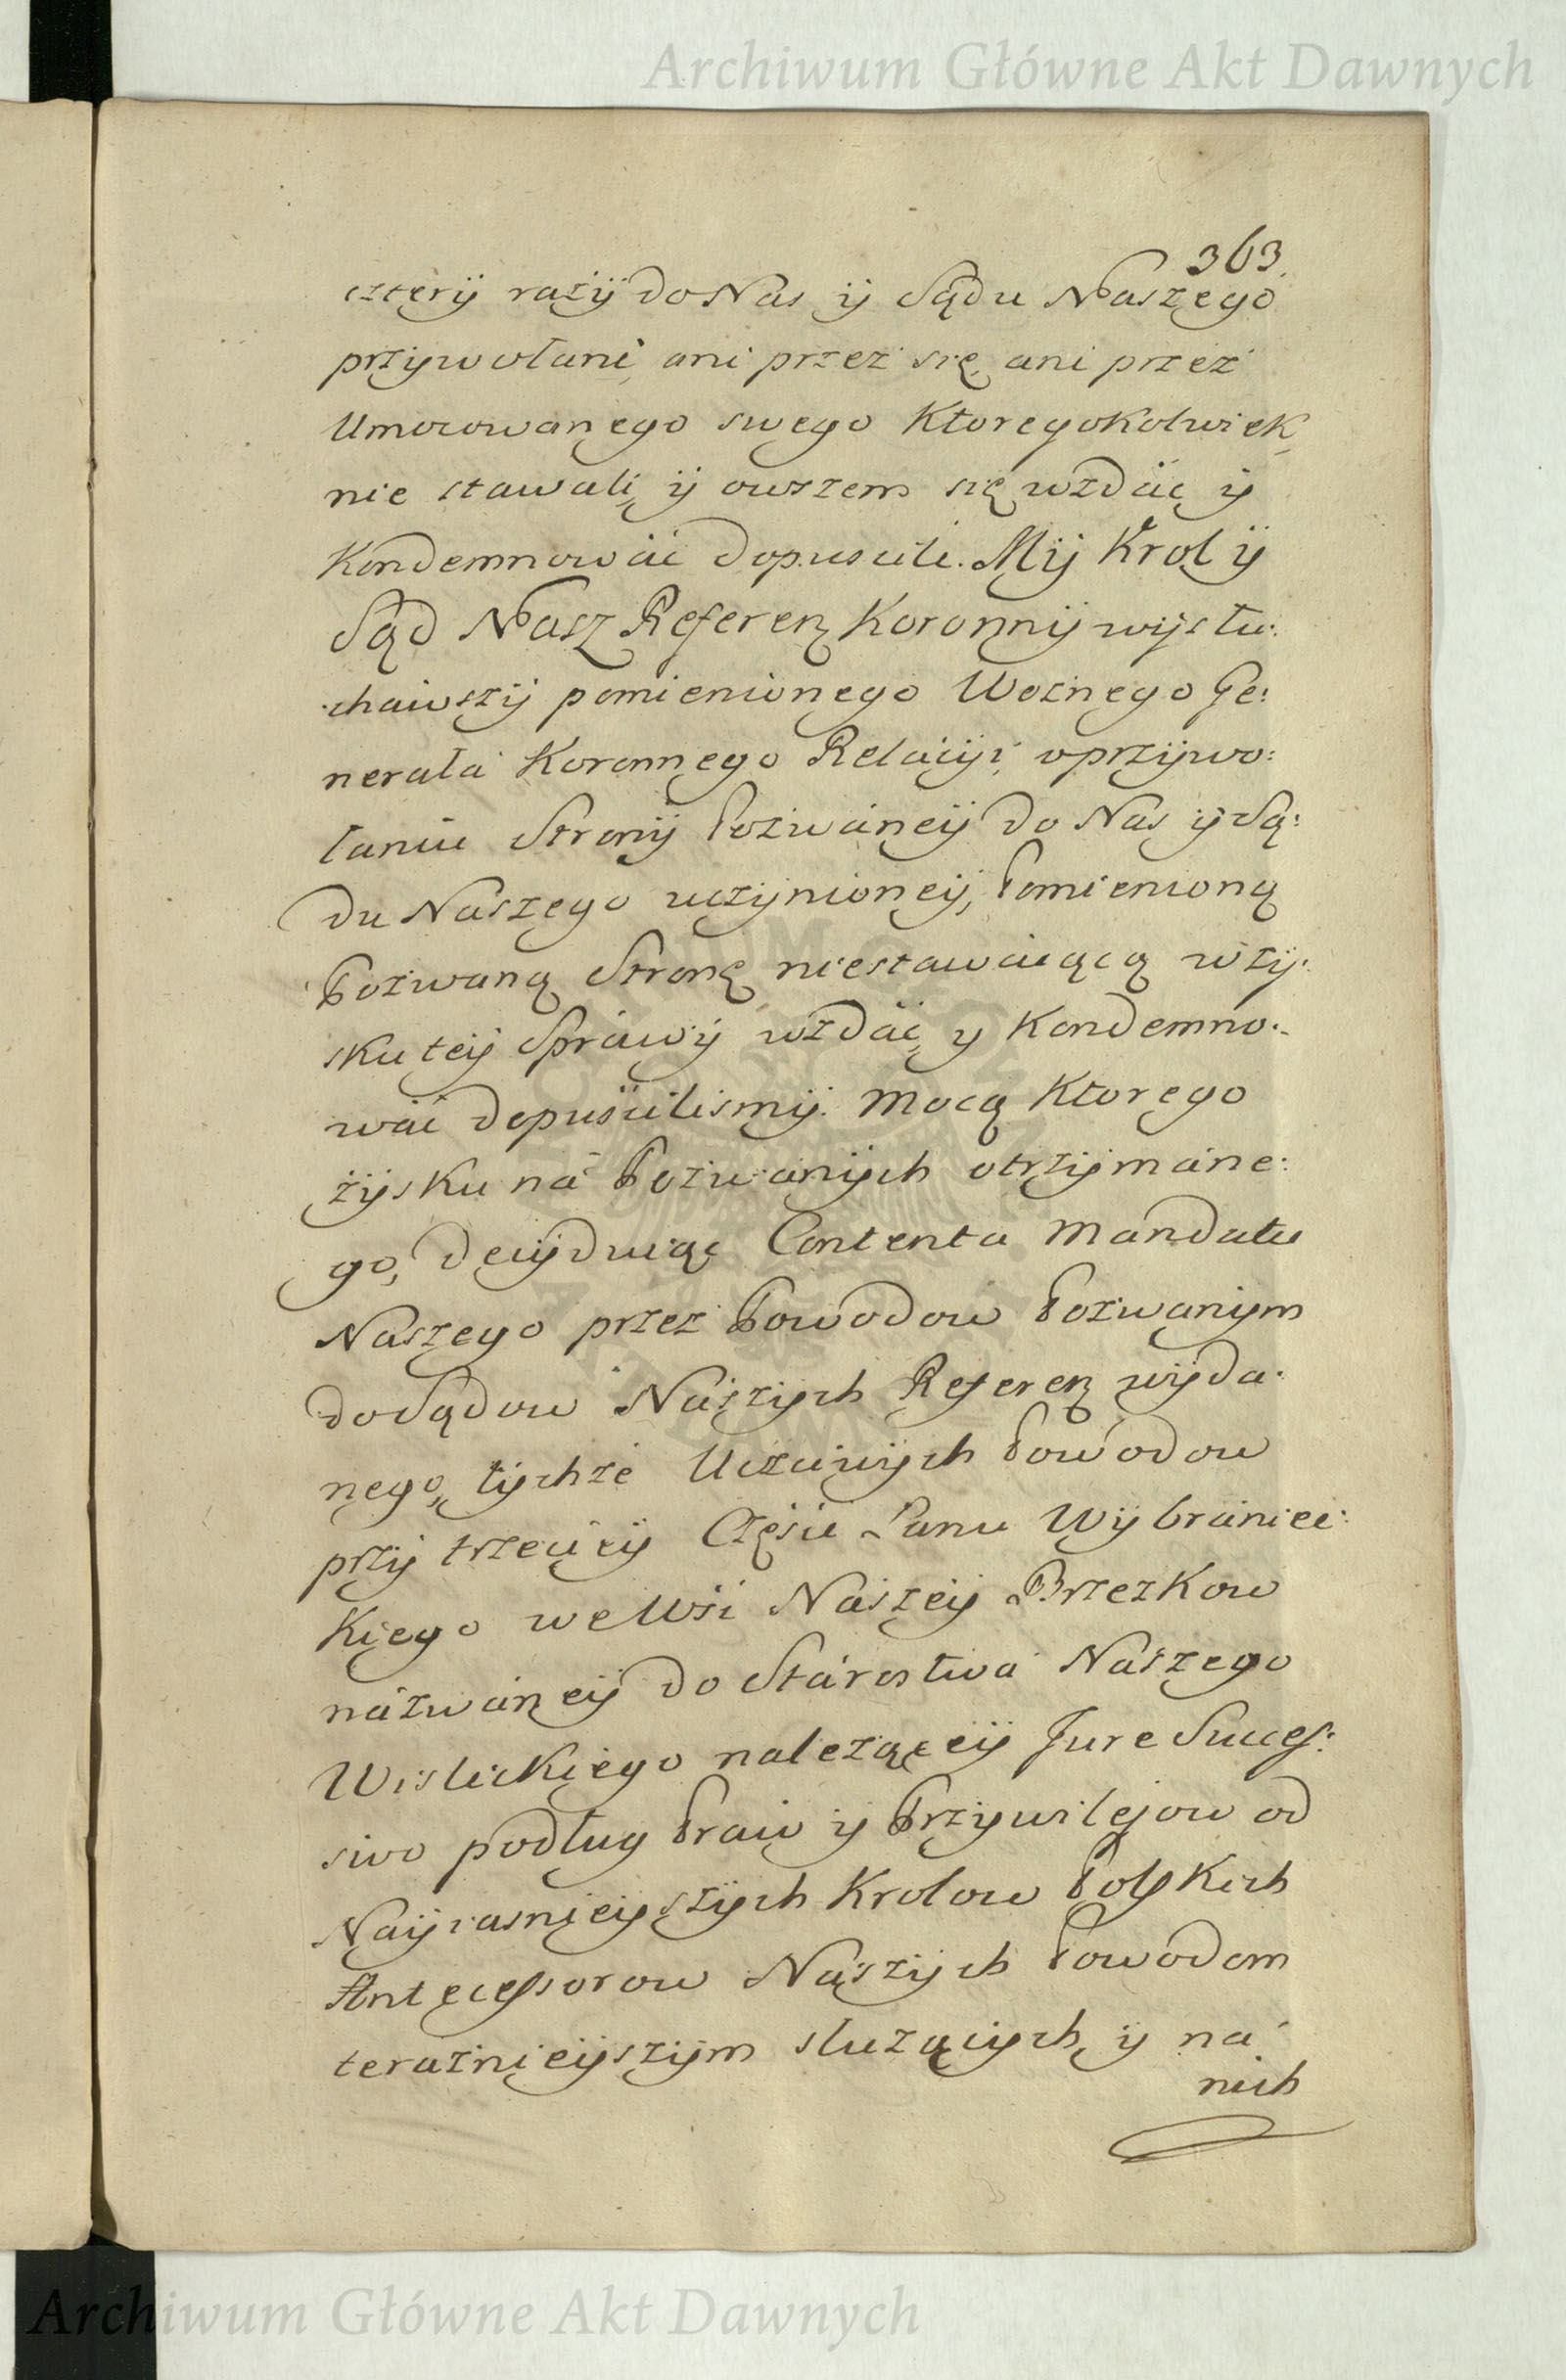 Archiwum Główne Akt Dawnych
363.
cztery razÿ do Nas ÿ Sądu Naszego
przywołani, ani przez się, ani przez
Umocowanego swego Ktoregokolwiek
nie stawali, ÿ owszem się wzdać ÿ
Kondemnować dopuscili. Mÿ Krol ÿ
Sąd Nasz Referen Koronnÿ wysłu:
chawszÿ pomienionego Woznego Ge:
nerała Koronnego Relacÿi o przÿwo:
łaniu Stronÿ Pozwaneÿ do Nas ÿ Są:
du Naszego uczÿnioneÿ, Pomienioną
Pozwaną Stronę niestawaiącą w zÿ:
sku teÿ Sprawÿ wzdać y Kondemno:
wać dopuścilismÿ. Mocą Ktorego
zÿsku na Pozwanÿch otrzÿmane:
go, decÿduiąc Contenta Mandatu
Naszego przez Powodow Pozwanÿm
do Sądow Naszÿch Referen wÿda:
nego, tÿchże Uczciwÿch Powodow
przÿ trzecieÿ Częsci Łanu Wÿbraniec:
Kiego we Wsi Naszeÿ Brzezkow
nazwaneÿ do Starostwa Naszego
Wislickiego nalezącეÿ Jure Succes:
sivo podług Praw ÿ Przÿwilejow od
Naÿiasnieÿszÿch Krolow Polskich
Antecessorow Naszÿch Powodom
teraznieÿszÿm sluzącÿch, ÿ na
nich
Archiwum Główne Akt Dawnych